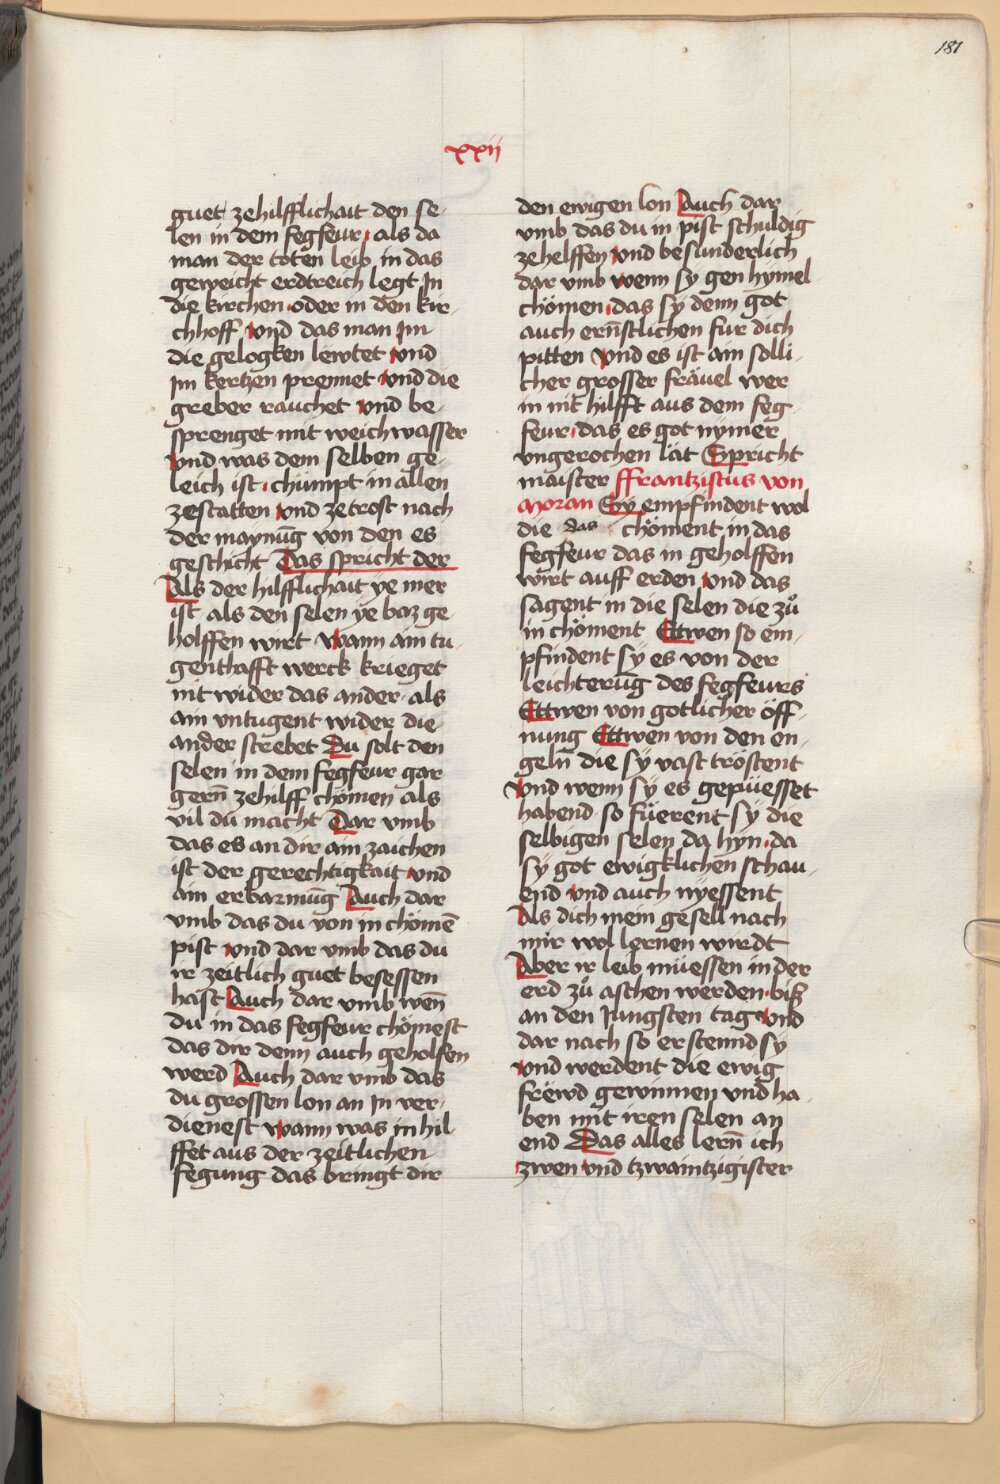 181
xxij
guet zehilfflichait den se-
len in dem fegfeur, als da
man der toten leib in das
geweicht erdtreich legt In
die kirchen oder in den kir-
chhoff vnd das man Im
die gelogken lewtet vnd
Im kertzen prennet vnd die
greber rauchet vnd be-
sprenget mit weichwasser
vnd was dem selben ge-
leich ist, chumpt in allen
zestatten vnd zetrost nach
der maynūg von den es
geschicht Das spricht der
Als der hilfflichait ye mer
ist als den selen ye baz ge-
holffen wirt wann ain tu-
genthafft werck krieget
nit wider das ander, als
ain vntugent wider die
ander strebet Du solt den
selen in dem fegfeur gar
gern̄ zehilff chömen als
vil du macht Dar vmb
das es an dir ain zaichen
ist der gerechtigkait vnd
ain erbarmūg Auch dar
vmb das du von in chömē
pist vnd dar vmb das du
ir zeitlich guet besessen
hast Auch dar vmb wen̄
du in das fegfeur chömest
das dir denn auch geholfen
werd Auch dar vmb das
du grossen lon an In ver-
dienest wann was in hil
ffet aus der zeitlichen
fegung das bringt dir
den ewigen lon Auch dar
vmb das du in pist schuldig
zehelffen vnd besunderlich
dar vmb wenn sy gen hymel
chömen, das sy denn got
auch ern̄stlichen fur dich
pitten vnd es ist ain solli-
cher grosser fräuel wer
in nit hilfft aus dem feg-
feur, das es got nymer
vngerochen lät Spricht
maister ffrantziscus von
Moran Sy empfindent wol
die das chöment in das
fegfeur das in geholffen
wirt auff erden vnd das
sagent in die selen die zů
in chöment Ettwen so em-
pfindent sy es von der
leichterūg des fegfeurs
Ettwen von gotlicher öff-
nung Ettwen von den en-
geln̄ die sy vast tröstent
vnd wenn sy es gepüesset
habend so füerent sy die
selbigen selen da hyn, da
sy got ewigklichen schau-
end vnd auch nyessent
Als dich mein gesell nach
mir wol lernen wirdt
Aber ir leib müessen in der
erd zů aschen werden biß
an den Jungsten tag vnd
dar nach so erstennd sy
vnd werdent die ewig
frewd gewinnen vnd ha-
ben mit iren selen an
end Das alles lern̄ ich
zwen vnd tzwaintzigister